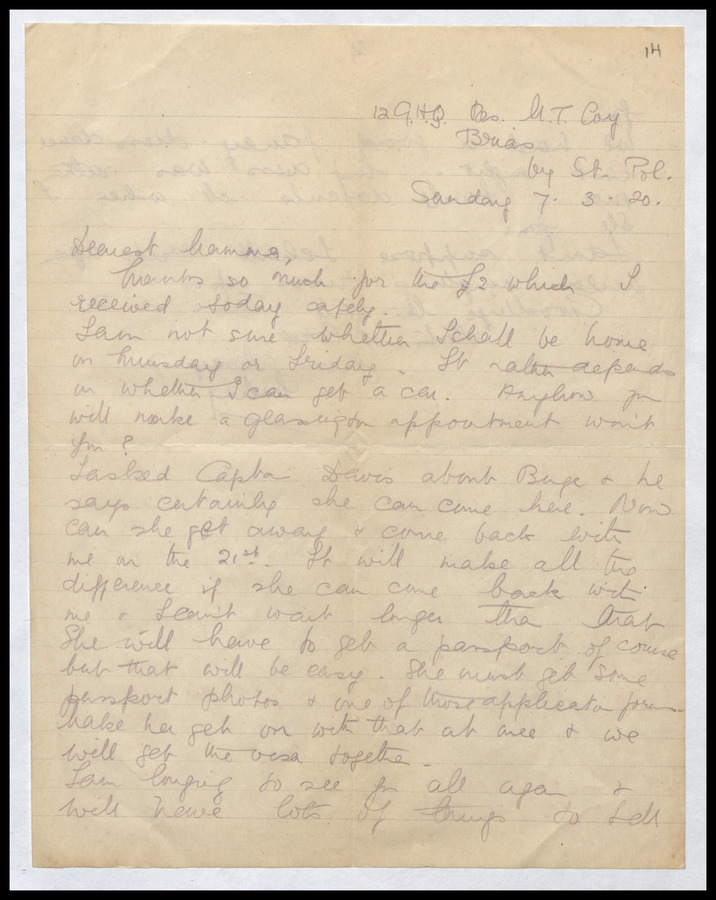 14
12 G.H.Q. Res. M.T. Coy
Brias
by St. Pol.
Sunday 7. 3. 20.
Dearest Mamma,
Thanks so much for the £2 which I
received today safely.
I am not sure whether I shall be home
on Thursday or Friday. It rather depends
on whether I can get a car. Anyhow you
will make a glassington appointment won't
you?
I asked Captn Davis about Buge & he
says certainly she can come here. Now
can she get away & come back with
me on the 21st. It will make all the
difference if she can come back with
me & I can't wait longer than that
She will have to get a passport of course
but that will be easy. She must get some
passport photos & one of those application forms
Make her get on with that at once & we
will get the visa together.
I am longing to see you all again &
will have lots of things to tell